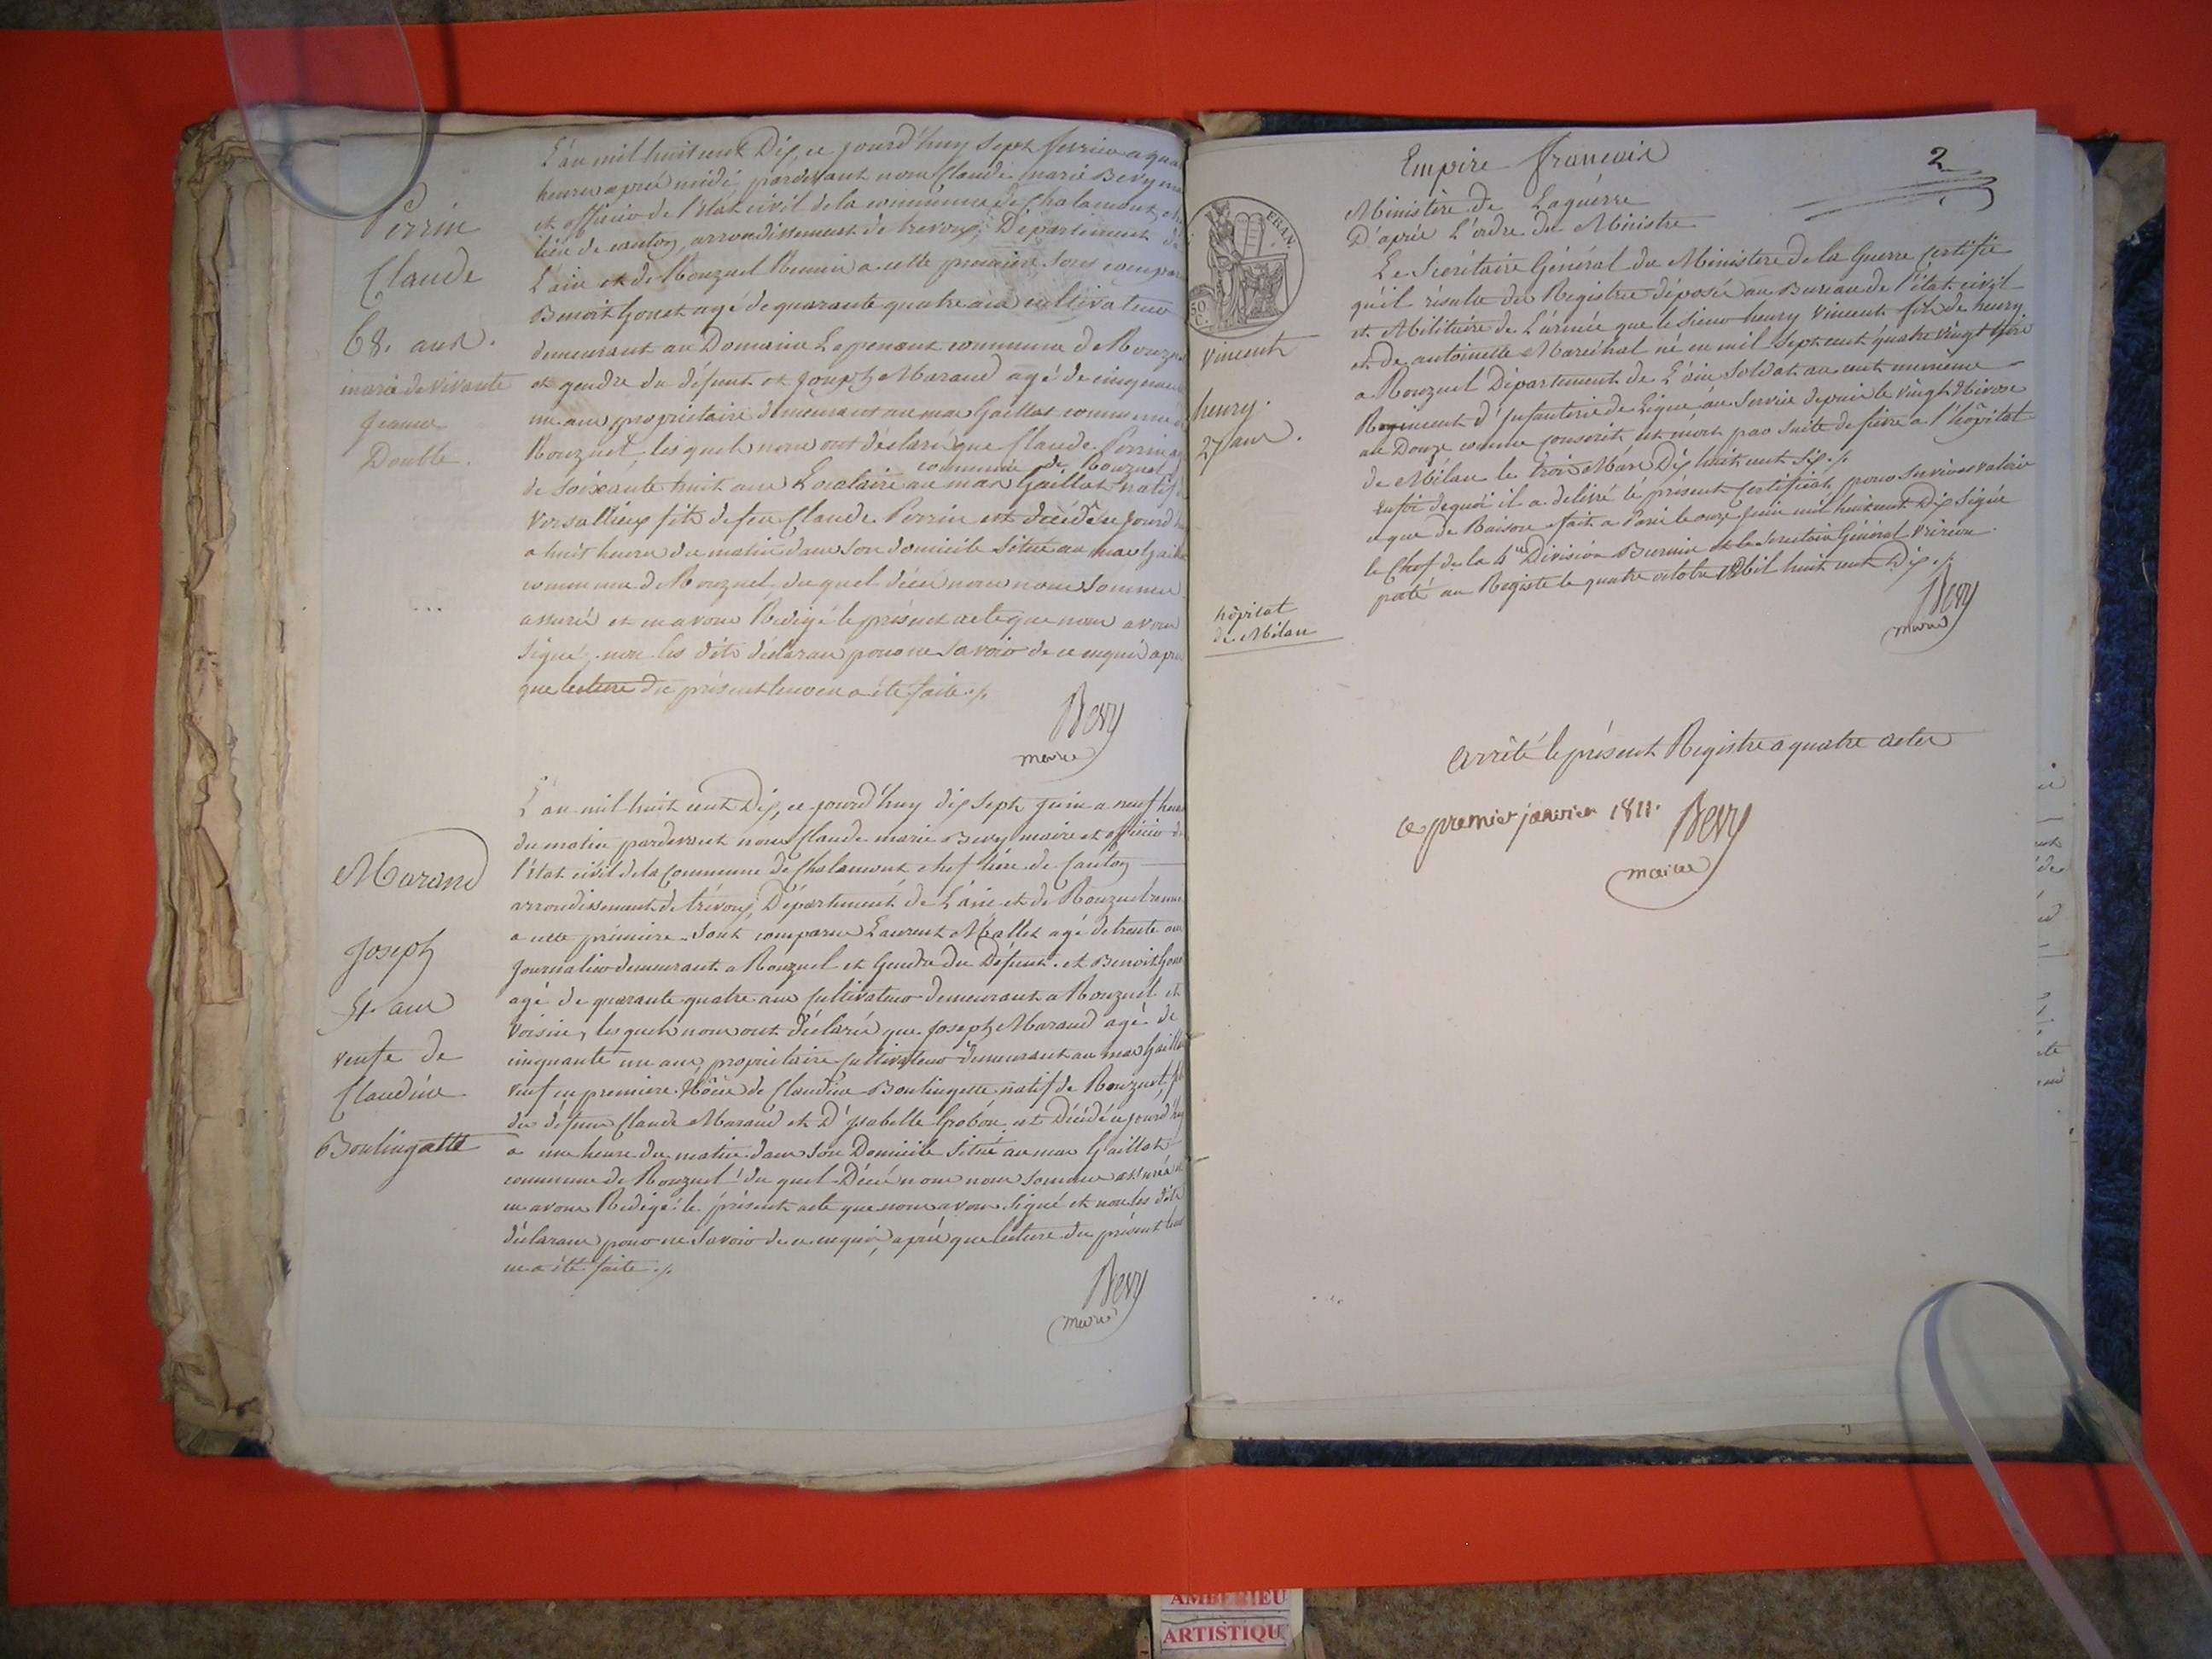 Perrin
Claude
68. ans.
marié de vivante
Jeanne
Double.
L'an mil huit cent Dix, ce jourd'huy sept fevrier a qua
heures aprés midi, pardevant nous Claude Marie Bevy ma
et officier de l'état civil de la commune de Chalamont, ch
lieu de canton, arrondissement de trevoux, Département de
L'ain et de Rouzuel Reunie a cette premiere. Sont compar
Benoit Gonet agé de quarante quatre ans cultivateur
demeurant au Domaine Lapenant commune de Rouzu
et gendre du défunt et Joseph Maraud agé de cinquante
un ans propriétaire demeurant au mas Gaillat commune de
Rouzuel, les quels nous ont déclaré que Claude Perrin ag
commune de Rouzuel
de soixante huit ans Locataire au mas Gaillat natif de
Versallieux fils de feu Claude Perrin est décédé ce jourd'hu
a huit heures du matin dans son domicile situé au mas Gailla
commune de Rouzuel, du quel décé nous nous sommes
assuré et en avons Redigé le présent acte que nous avons
signé, non les dits déclarans pour ne savoir de ce enquis aprés
que lecture du présent leur en a été faite ./.
Bevy
maire
Maraud
Joseph
51. ans
veufe de
Claudine
Boulingatte
L'an mil huit cent Dix, ce jourd'huy dix sept juin a neuf heure
du matin pardevant nous Claude marie Bevy maire et officier de
l'état civil de la Commune de Chalamont chef lieu de Canton
arrondissement de trévoux, Département de L'ain et de Rouzuel reunie
a cette prémiere. Sont comparu Laurent Mallet agé de trente ans
Journalier demeurant a Rouzuel et Gendre du Défunt. et Benoit Gone
agé de quarante quatre ans cultivateur demeurant a Rouzuel et
voisin, les quels nous ont déclaré que Joseph Maraud agé de
cinquante un ans, propriétaire cultivateur demeurant au mas Gaillat
veuf en premiere Nôce de Claudine Boulingette natif de Rouzuel, fil
du défunt Claude Maraud et D'ysabelle Grobon est Décédé ce jourd'huy
a une heure du matin dans son Domicile situé au mas Gaillat
commune de Rouzuel, du quel Décé nous nous sommes assuré et
en avons Redigé le présent acte que nous avons signé et non les dits
déclarans pour ne savoir de ce enquis, aprés que lecture du présent leur
en a été faite ./.
Bevy
maire
2
FRAN.
50
C.
vincent
henry.
27 ans.
hôpital
de Milan
Empire francais
Ministere de Laguerre
D'aprés L'ordre du Ministre
Le Secrétaire Général du Ministere de la Guerre Certifie
qu'il résulte des Registres déposés au Bureau de l'état civil
et Militaire de L'armée que le Sieur henry Vincent fils de henry
et de antoinette Maréchal né en mil sept cent quatre vingt trois
a Rouzuel Département de L'ain Soldat au cent unieme
Regiment d'Infanterie de Ligne au Service depuis le vingt Nivose
an Douze comme conscrit est mort par suite de fievre a l'hôpital
de Milan le trois Mars Dix huit cent six ./.
En foi dequoi il a delivré lé présent Certificat, pour servir et valoir
ce que de Raison fait a Paris le onze Juin mil huit cent Dix Signé
le Chef de la 4e Division Barnier et le Secretaire Général
porté au Registre le quatre octobre Mil huit cent Dix ./.
Bevy
maire
Arrêté le présent Registre a quatre actes
ce premier janvier 1811.
Bevy
maire
AMBERIEU
ARTISTIQU